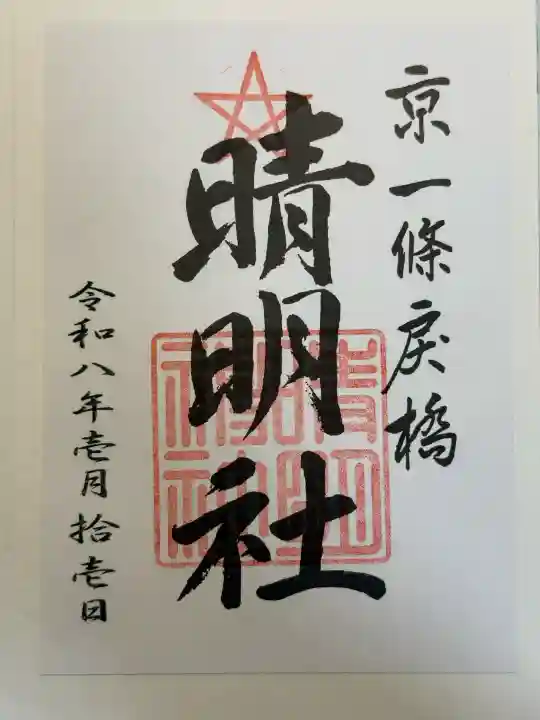 京一條戻橋
晴明社
晴明神社
令和八年壱月拾壱日